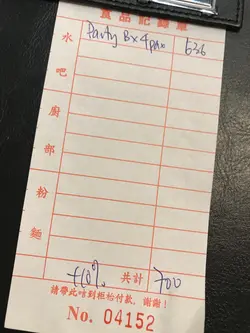 食品記錄單
水 Party Bx4pax 636
吧
廚
部
粉
麵
+10% 共計 700
請帶此咭到柜枱付款，謝謝！
No. 04152